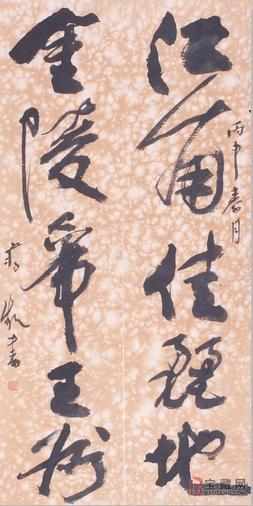 江南佳麗地
丙申春月
金陵帝王州
书
宝藏网
BAOZANG.COM